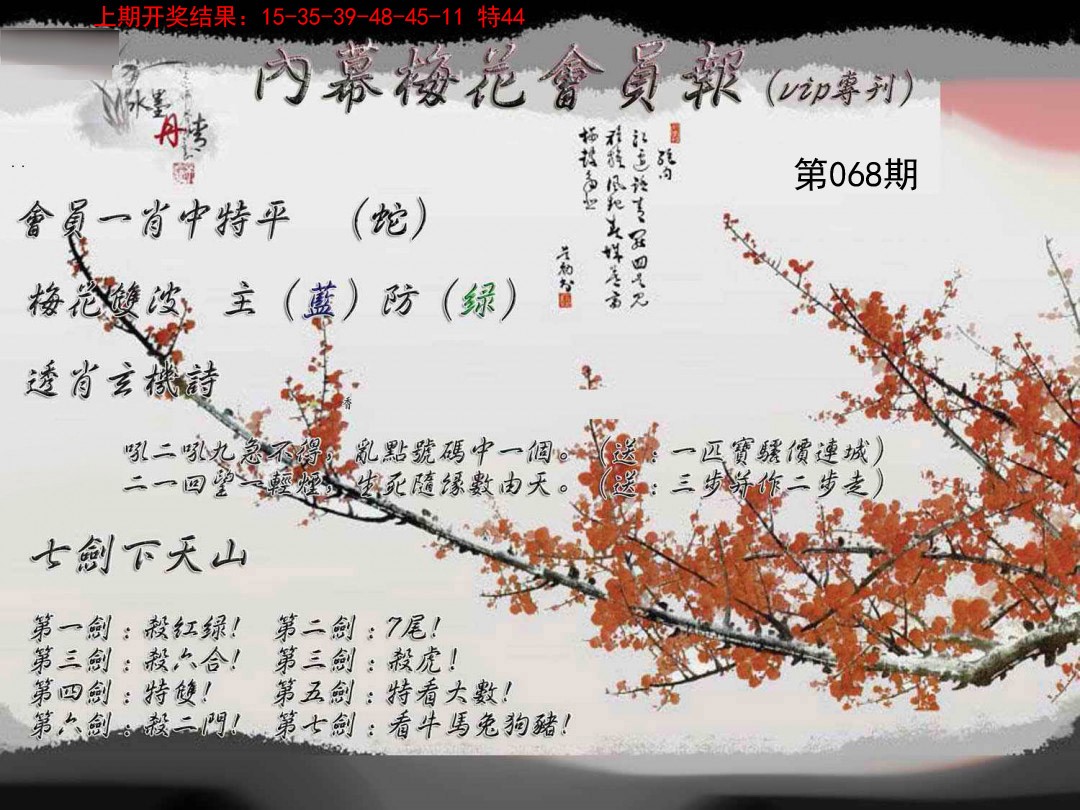 上期开奖结果：15-35-39-48-45-11 特44
內幕梅花會員報（vip專刊）
水墨
丹情
第068期
會員一肖中特平 （蛇）
梅花雙波 主（藍）防（绿）
透肖玄機詩
香
吼二吼九急不得，亂點號碼中一個。（送：一匹寶騾價連城）
二一回望一輕煙，生死隨缘數由天。（送：三步并作二步走）
七劍下天山
第一劍：殺红绿！ 第二劍：7尾！
第三劍：殺六合！ 第三劍：殺虎！
第四劍：特雙！ 第五劍：特看大數！
第六劍：殺二門！ 第七劍：看牛馬兔狗豬！